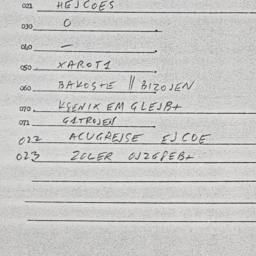 021 HEJCOES
030 O
040 —
050 XAROT1
060 BAKOSTE // BIZOJEN
070 KSENIK EM GLEJB+
071 GATROJEN
022 ACUGREJSE EJCOE
023 ZOLER